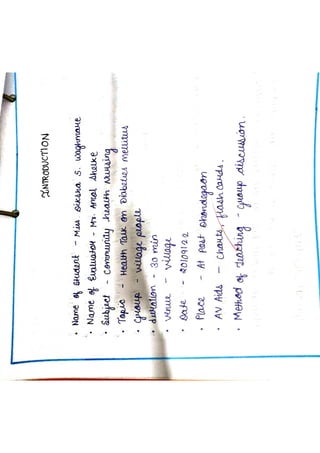 INTRODUCTION
• Name of student - Miss Diksha S. Waghmare
• Name of Evaluator - Mr. Amol Shelke
• Subject - Community Health Nursing
• Topic - Health Talk on Diabetes mellitus
• Group - village people
• duration - 30 min
• Venue - village
• Date - 20/09/22
• Place - At Post Dhondegaon
• AV Aids - Charts, flash cards.
• Method of teaching - Group discussion.